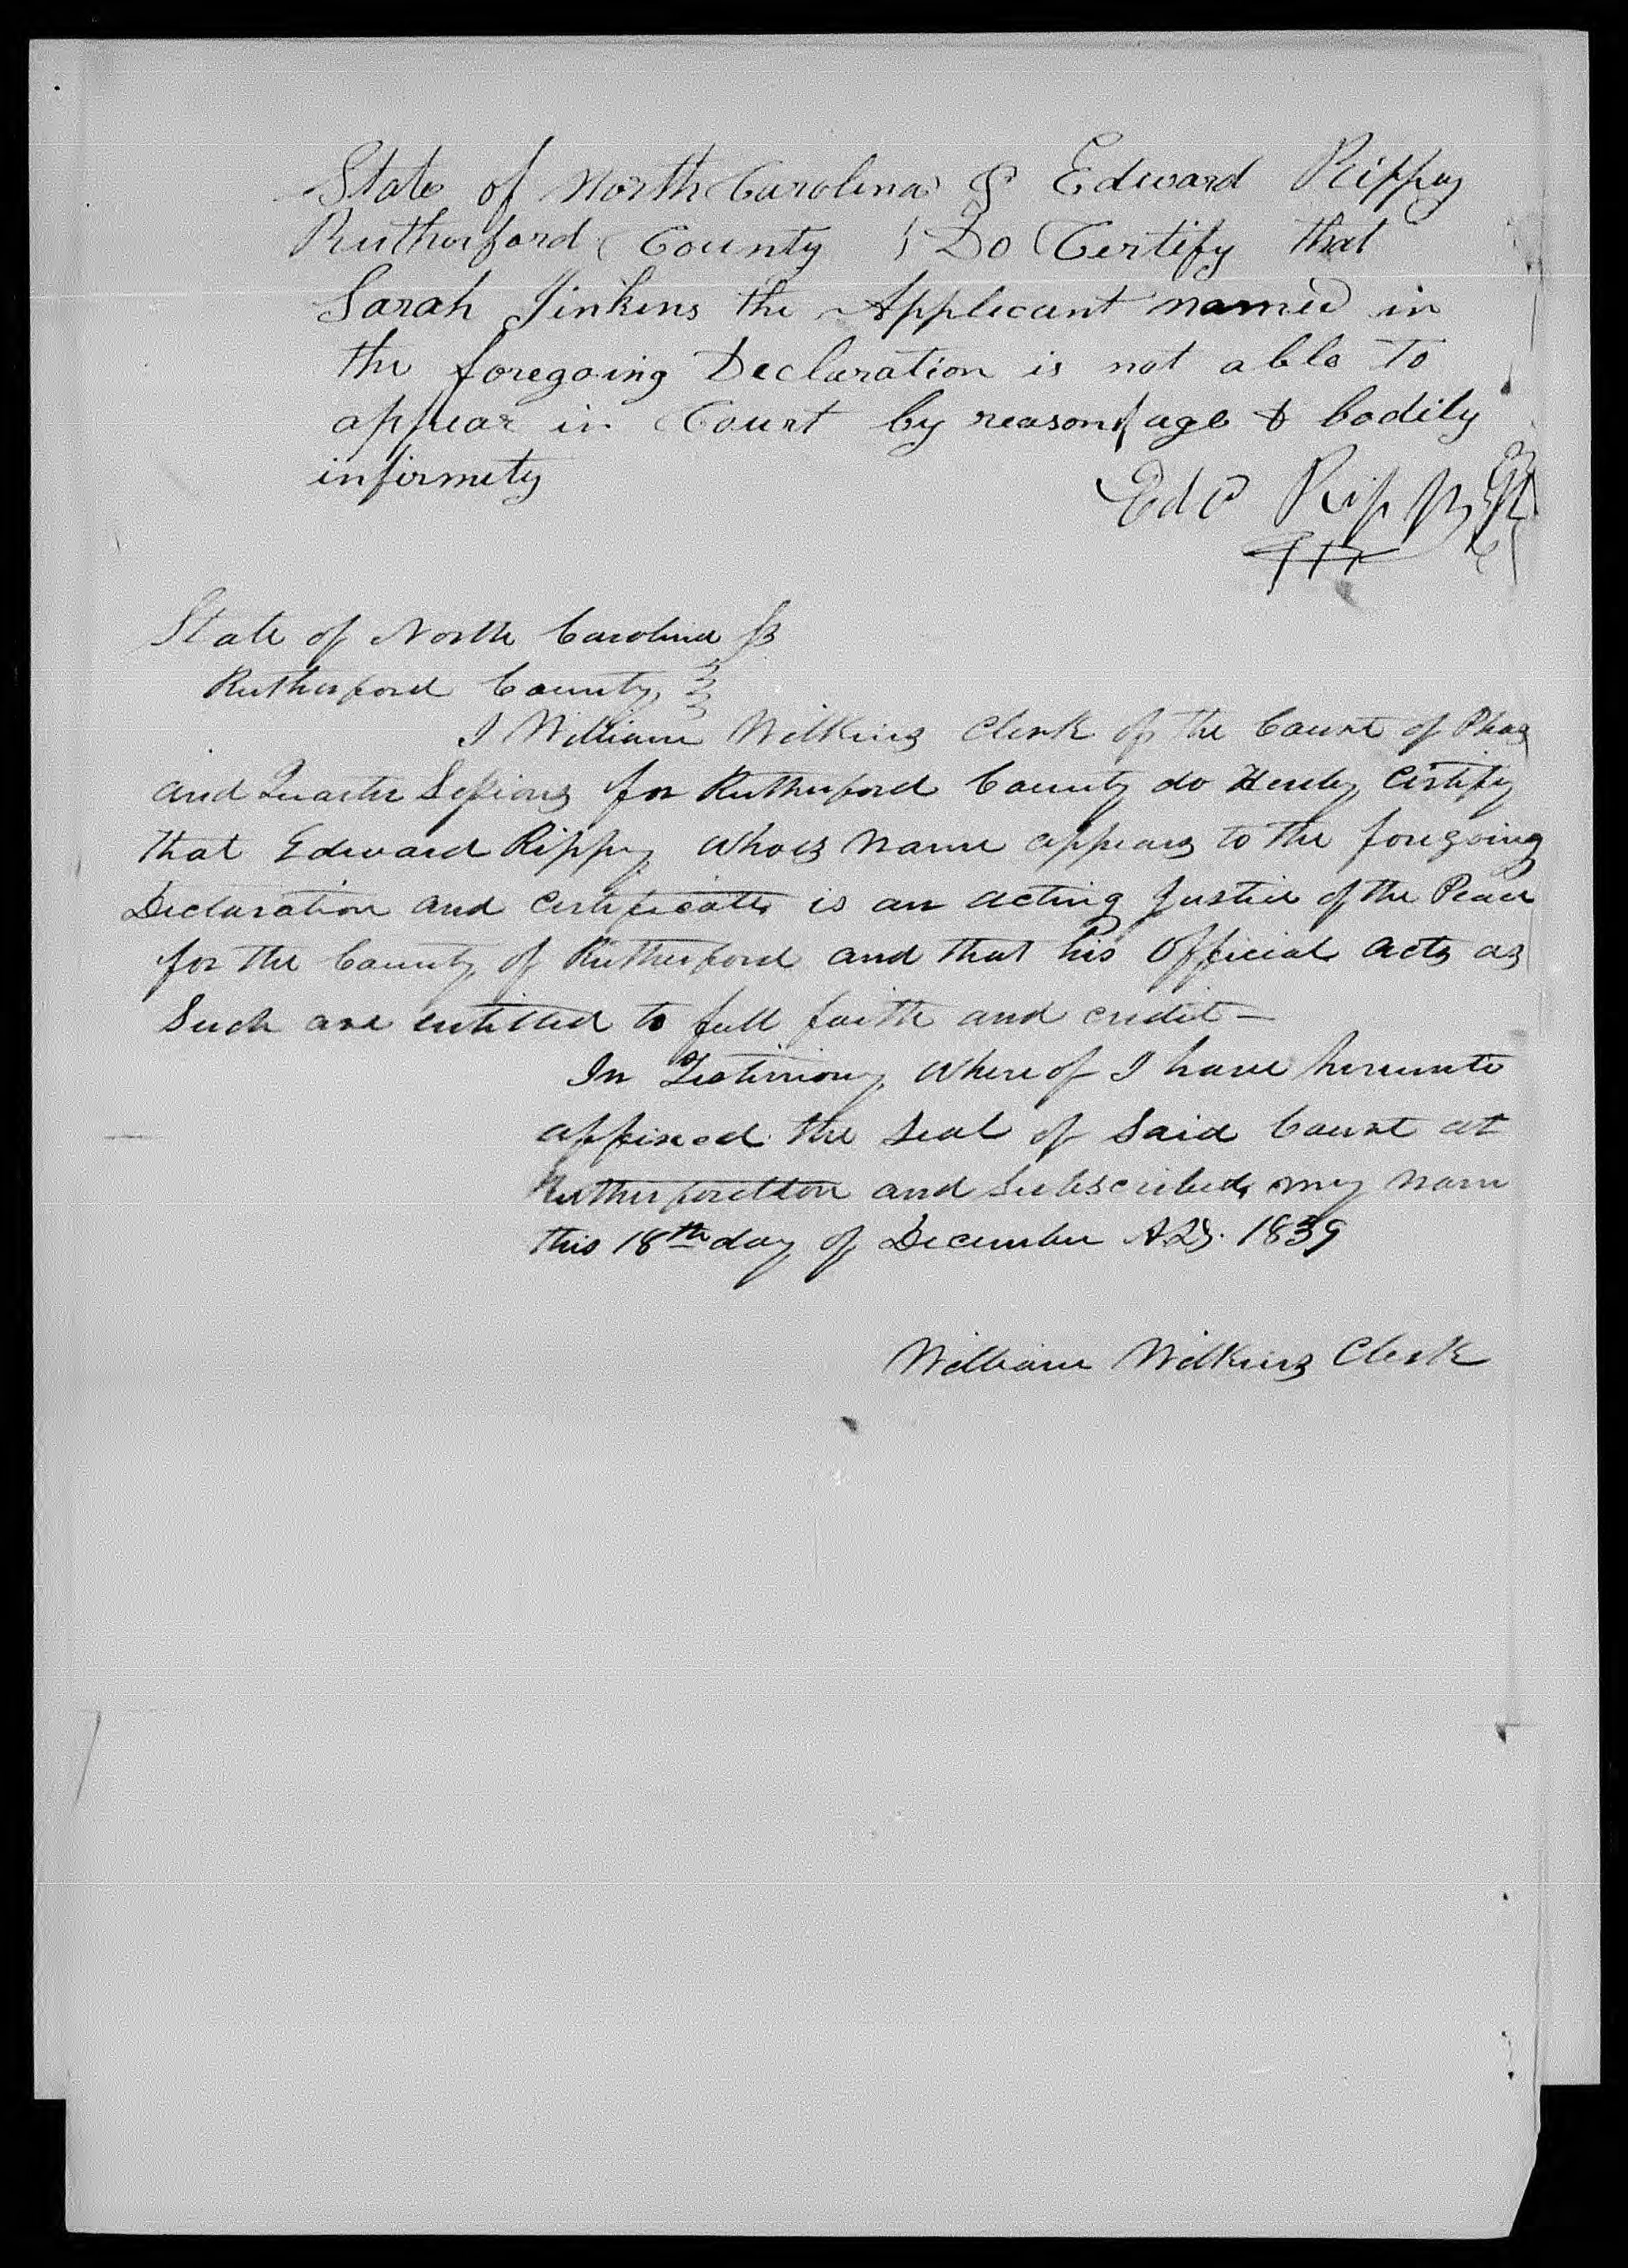 State of North Carolina I Edward Rippy
Rutherford County Do Certify that
Sarah Jinkins the Applicant named in
the foregoing Declaration is not able To
appear in Court by reason of age & bodily
infirmity
Edwd Rippy
State of North Carolina
Rutherford County
I William Wilkins Clerk of the Court of Pleas
and Quarter Sessions for Rutherford County do Hereby Certify
that Edward Rippy whoes name appears to the foregoing
Declaration and Certificate is an acting Justice of the Peace
for the County of Rutherford and that his Official acts as
Such are entitled to full faith and credit —
In Testimony Whereof I have hereunto
affixed the Seal of Said Court at
Rutherfordton and Subscribed my name
this 18th day of December A.D. 1839
William Wilkins Clerk